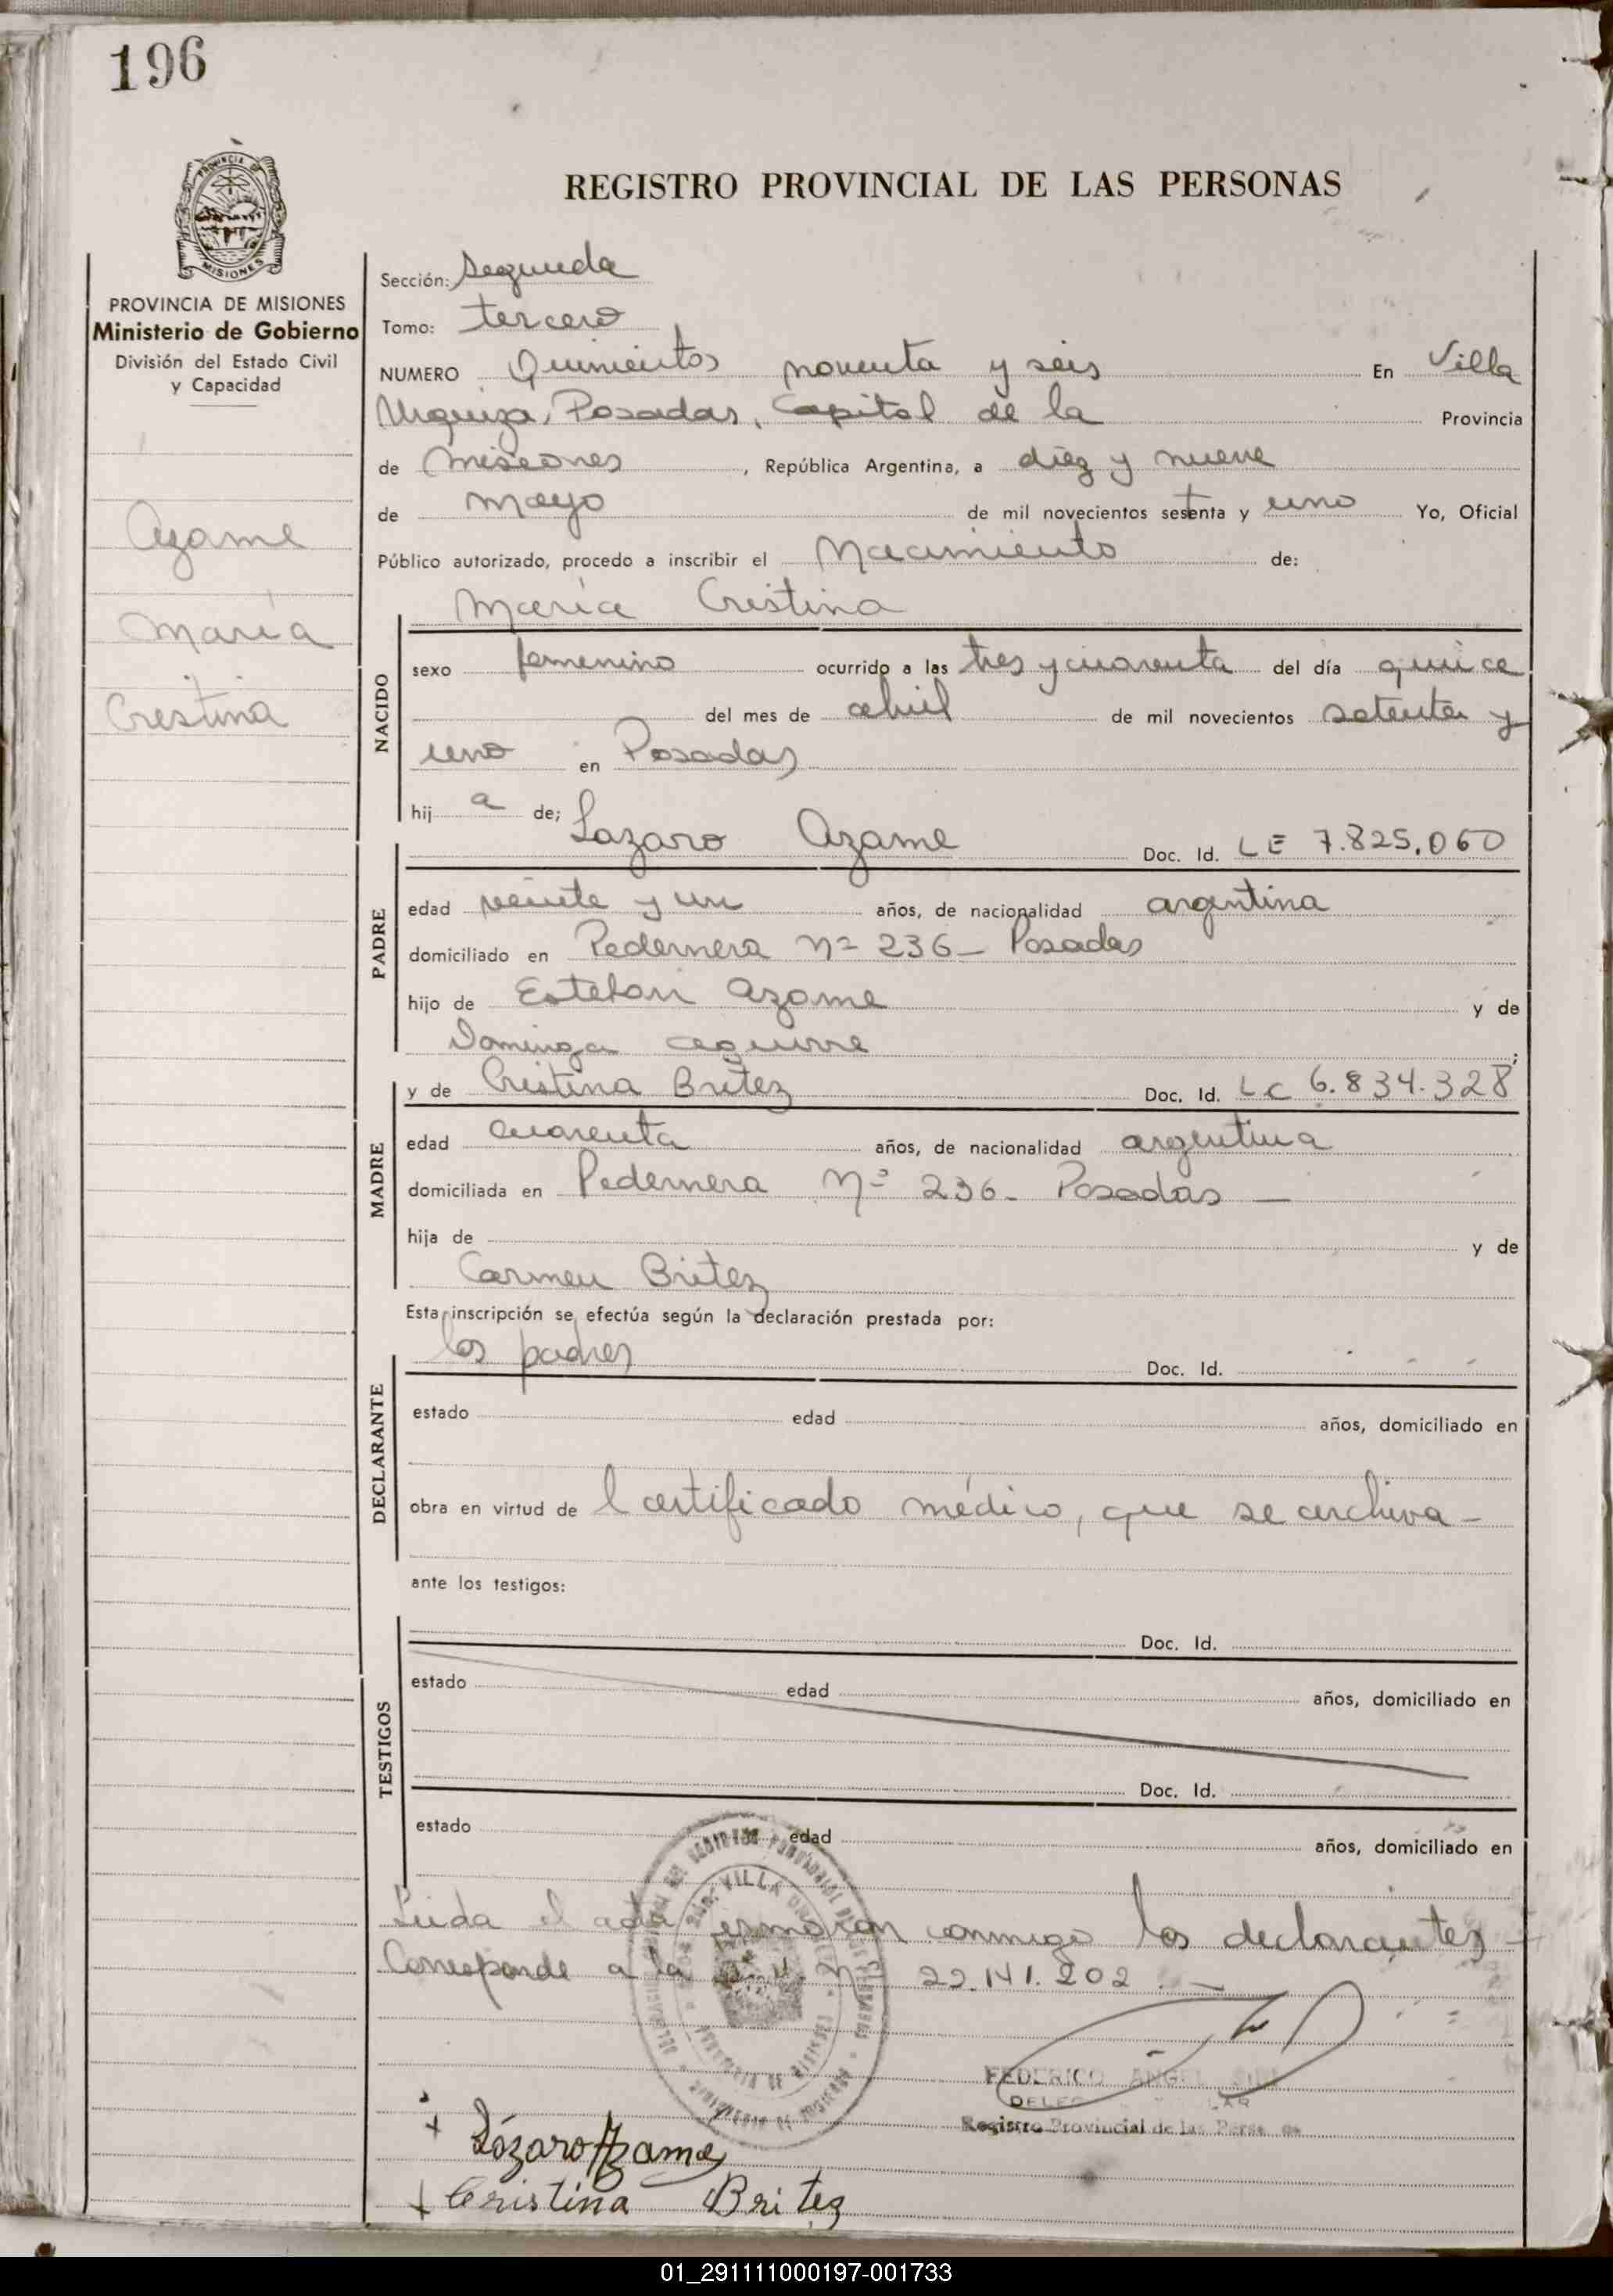 196
PROVINCIA DE
MISIONES
REGISTRO PROVINCIAL DE LAS PERSONAS
PROVINCIA DE MISIONES
Ministerio de Gobierno
División del Estado Civil
y Capacidad
Azame
María
Cristina
Sección: Segunda
Tomo: tercero
NUMERO Quinientos noventa y seis En Villa
Urquiza, Posadas, Capital de la Provincia
de Misiones, República Argentina, a diez y nueve
de mayo de mil novecientos setenta y uno Yo, Oficial
Público autorizado, procedo a inscribir el Nacimiento de:
María Cristina
NACIDO
sexo femenino ocurrido a las tres y cuarenta del día quince
del mes de abril de mil novecientos setenta y
uno en Posadas
hij a de; Lazaro Azame Doc. Id. LE 7.825.060
PADRE
edad veinte y un años, de nacionalidad argentina
domiciliado en Pedernera Nº 236 - Posadas
hijo de Esteban Azame y de
Dominga Aguirre ;
y de Cristina Britez Doc. Id. LC 6.834.328
MADRE
edad cuarenta años, de nacionalidad argentina
domiciliada en Pedernera Nº 236 - Posadas —
hija de y de
Carmen Britez
Esta inscripción se efectúa según la declaración prestada por:
los padres Doc. Id.
DECLARANTE
estado edad años, domiciliado en
obra en virtud de l certificado médico, que se archiva -
ante los testigos:
Doc. Id.
TESTIGOS
estado edad años, domiciliado en
Doc. Id.
estado edad años, domiciliado en
Leida el acta firmaron conmigo los declarantes -
Corresponde a la Nº 22.141.202. —
VILLA
FEDERICO ANGEL
Registro Provincial de las
+ Lázaro Azame
+ Cristina Britez
01_291111000197-001733